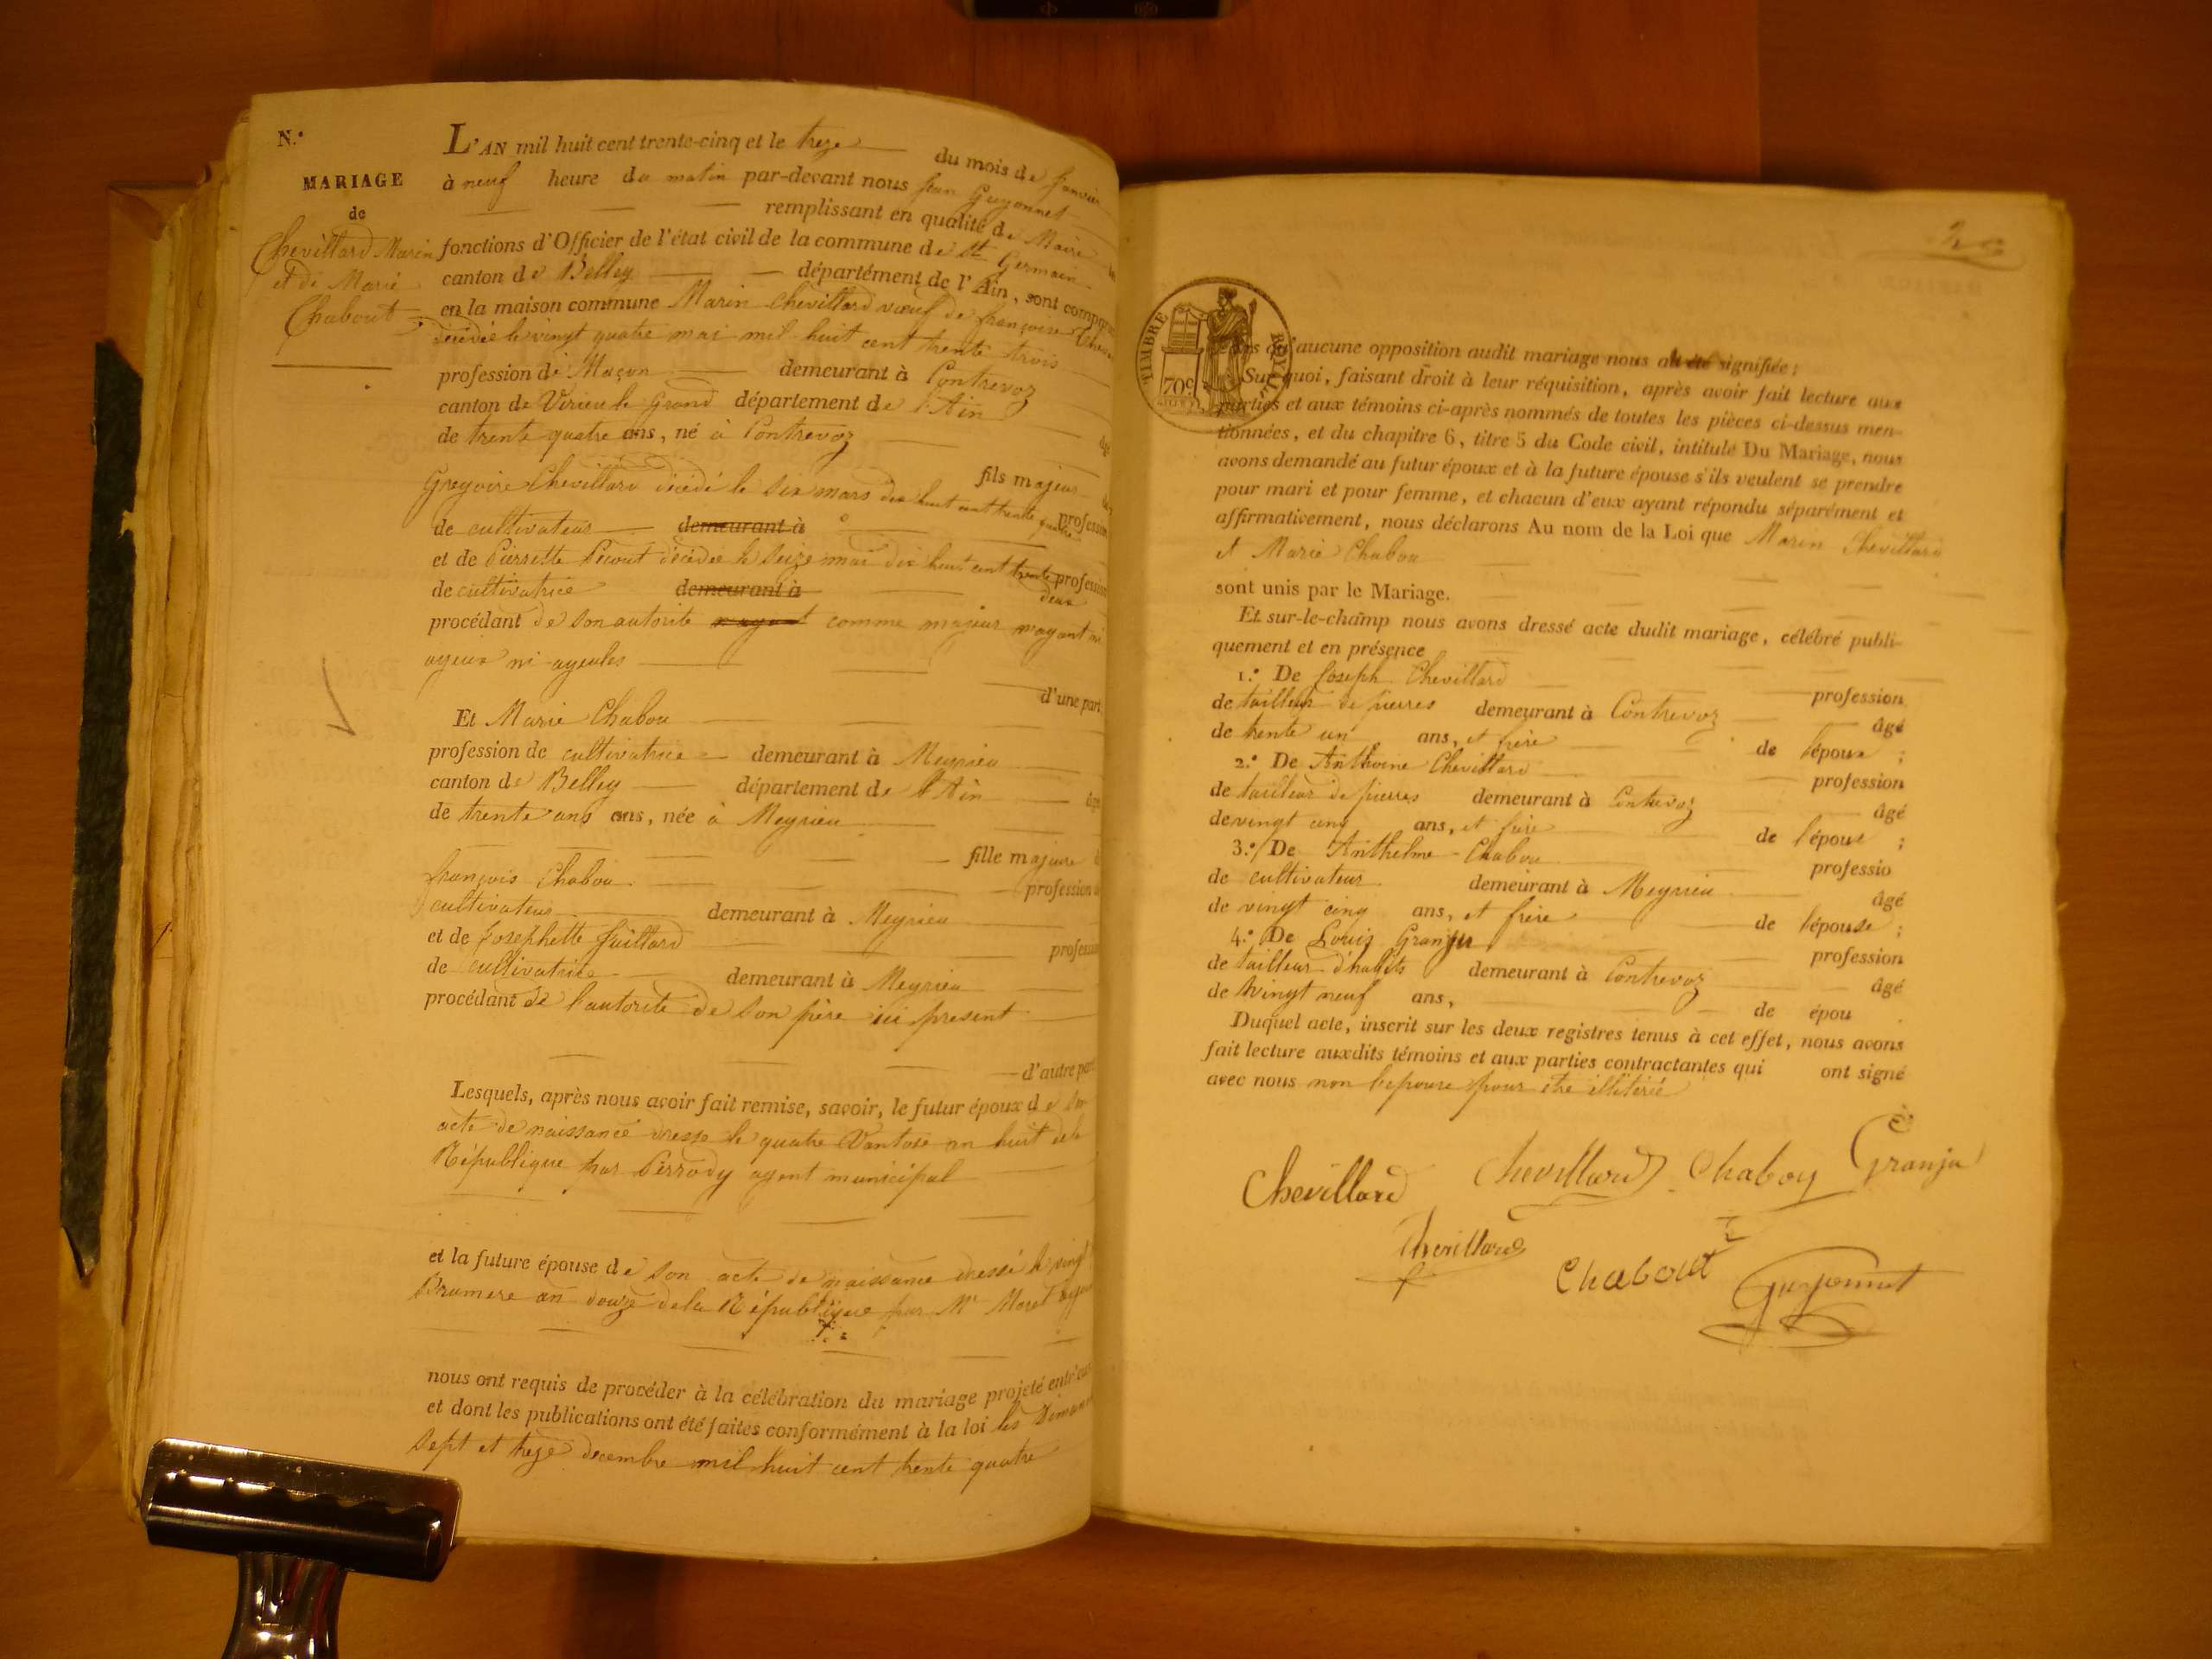 N.°
MARIAGE
de
Chevillard Marin
et de Marie
Chabout
L'AN mil huit cent trente-cinq et le treze du mois de Janvier
à neuf heure du matin par-devant nous Jean Guyonnet
remplissant en qualité de Maire
fonctions d'Officier de l'état civil de la commune de St Germain
canton de Belley département de l'Ain, sont comparu
en la maison commune Marin Chevillard vœuf de françoise
décédée le vingt quatre mai mil huit cent trente trois
profession de Maçon demeurant à Contrevoz
canton de Virieu le Grand département de l'Ain
de trente quatre ans, né à Contrevoz âgé
fils majeur de
Gregoire Chevillard décédé le six mars dix huit cent trente quatre profession
de cultivateur demeurant à
et de Pierrette Pecout décédée le seize mai dix huit cent trente deux profession
de cultivatrice demeurant à
procédant de son autorité comme majeur n'ayant ni
ayeux ni ayeules
d'une part.
Et Marie Chabou
profession de cultivatrice demeurant à Meyrieu
canton de Belley département de l'Ain âgé
de trente ans ans, née à Meyrieu
fille majeure
françois Chabou profession
cultivateur demeurant à Meyrieu
et de Josephette Juillard profession
de cultivatrice demeurant à Meyrieu
procédant de l'autorité de son père ici présent
d'autre part
Lesquels, après nous avoir fait remise, savoir, le futur époux de son
acte de naissance dressé le quatre Vantose an huit de la
République par Perrody agent municipal
et la future épouse de son acte de naissance dressé le vingt
Brumere an douze de la République par Mr Moret
nous ont requis de procéder à la célébration du mariage projeté entr'eux
et dont les publications ont été faites conformément à la loi les Dimanches
sept et treze decembre mil huit cent trente quatre
TIMBRE ROYAL
70c
qu'aucune opposition audit mariage nous ait été signifiée;
Sur quoi, faisant droit à leur réquisition, après avoir fait lecture aux
parties et aux témoins ci-après nommés de toutes les pièces ci-dessus men-
tionnées, et du chapitre 6, titre 5 du Code civil, intitulé Du Mariage, nous
avons demandé au futur époux et à la future épouse s'ils veulent se prendre
pour mari et pour femme, et chacun d'eux ayant répondu séparément et
affirmativement, nous déclarons Au nom de la Loi que Marin Chevillard
et Marie Chabou
sont unis par le Mariage.
Et sur-le-champ nous avons dressé acte dudit mariage, célébré publi-
quement et en présence
1.° De Joseph Chevillard profession
de tailleur de pierres demeurant à Contrevoz âgé
de trente un ans, et frère de l'époux ;
2.° De Anthoine Chevillard profession
de tailleur de pierres demeurant à Contrevoz âgé
de vingt cinq ans, et frère de l'époux ;
3.° De Anthelme Chabou professio
de cultivateur demeurant à Meyrieu âgé
de vingt cinq ans, et frère de l'épouse ;
4.° De Louis Granju profession
de tailleur d'habits demeurant à Contrevoz âgé
de vingt neuf ans, de épou
Duquel acte, inscrit sur les deux registres tenus à cet effet, nous avons
fait lecture auxdits témoins et aux parties contractantes qui ont signé
avec nous non l'epouse pour être illiterée
Chevillard Chevillard Chabou Granju
Chevillard Chabout Guyonnet